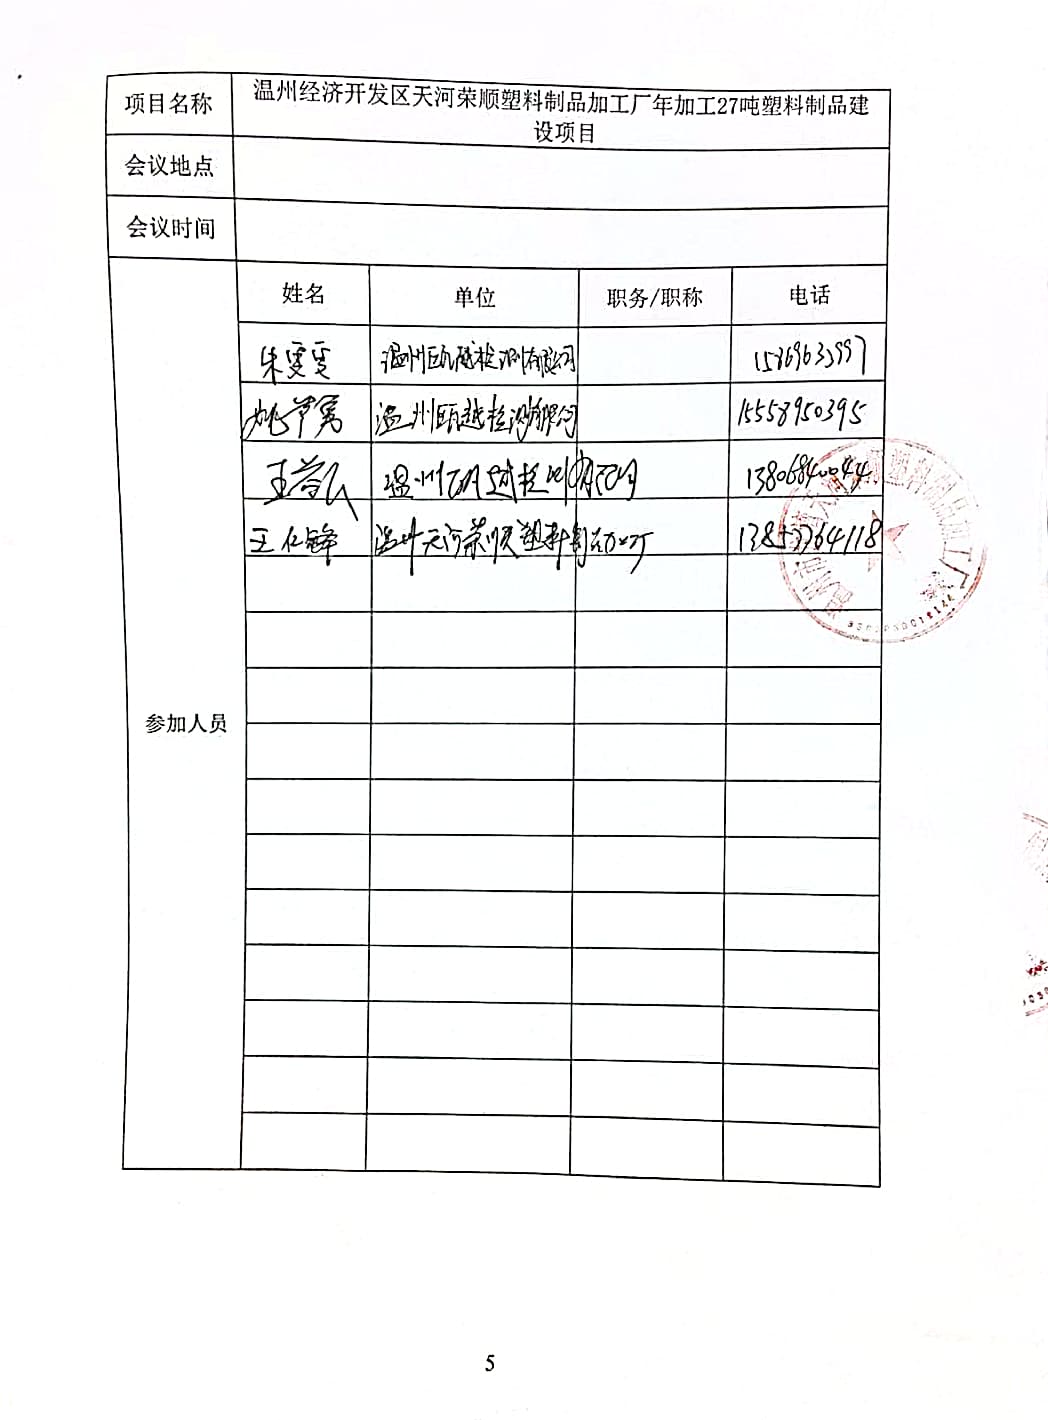 项目名称
温州经济开发区天河荣顺塑料制品加工厂年加工27吨塑料制品建
设项目
会议地点
会议时间
参加人员
姓名 单位 职务/职称 电话
朱雯雯 温州瓯越检测有限公司
温州瓯越检测有限公司 15558950395
温州瓯越检测有限公司 13806840044
王仁锋 温州天河荣顺塑料制品加工厂
5